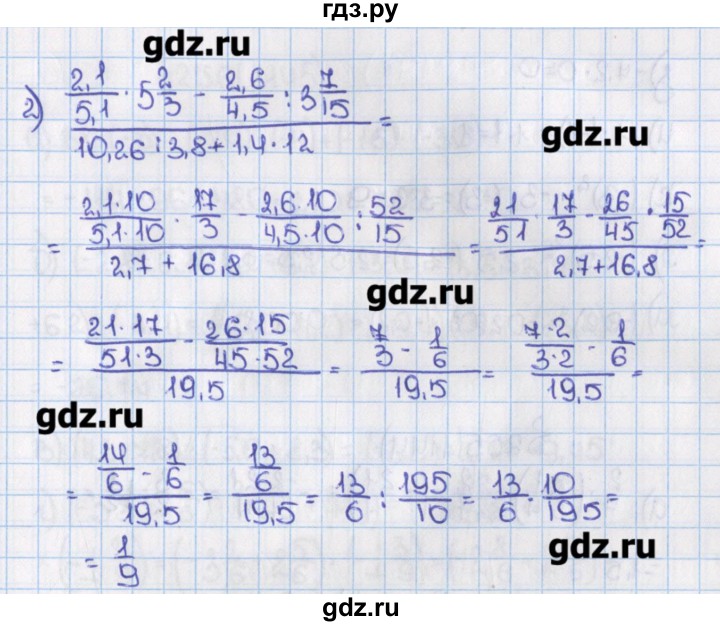 гдз.ру
gdz.ru
2) (2,1/5,1 · 5 2/3 − 2,6/4,5 : 3 7/15) / (10,26 : 3,8 + 1,4 · 12) =
gdz.ru
= (2,1·10/5,1·10 · 17/3 − 2,6·10/4,5·10 : 52/15) / (2,7 + 16,8) = (21/51 · 17/3 − 26/45 · 15/52) / (2,7+16,8) =
gdz.ru
= (21·17/51·3 − 26·15/45·52) / 19,5 = (7/3 − 1/6) / 19,5 = (7·2/3·2 − 1/6) / 19,5 =
gdz.ru
= (14/6 − 1/6) / 19,5 = (13/6) / 19,5 = 13/6 : 195/10 = 13/6 · 10/195 =
gdz.ru
= 1/9
gdz.ru